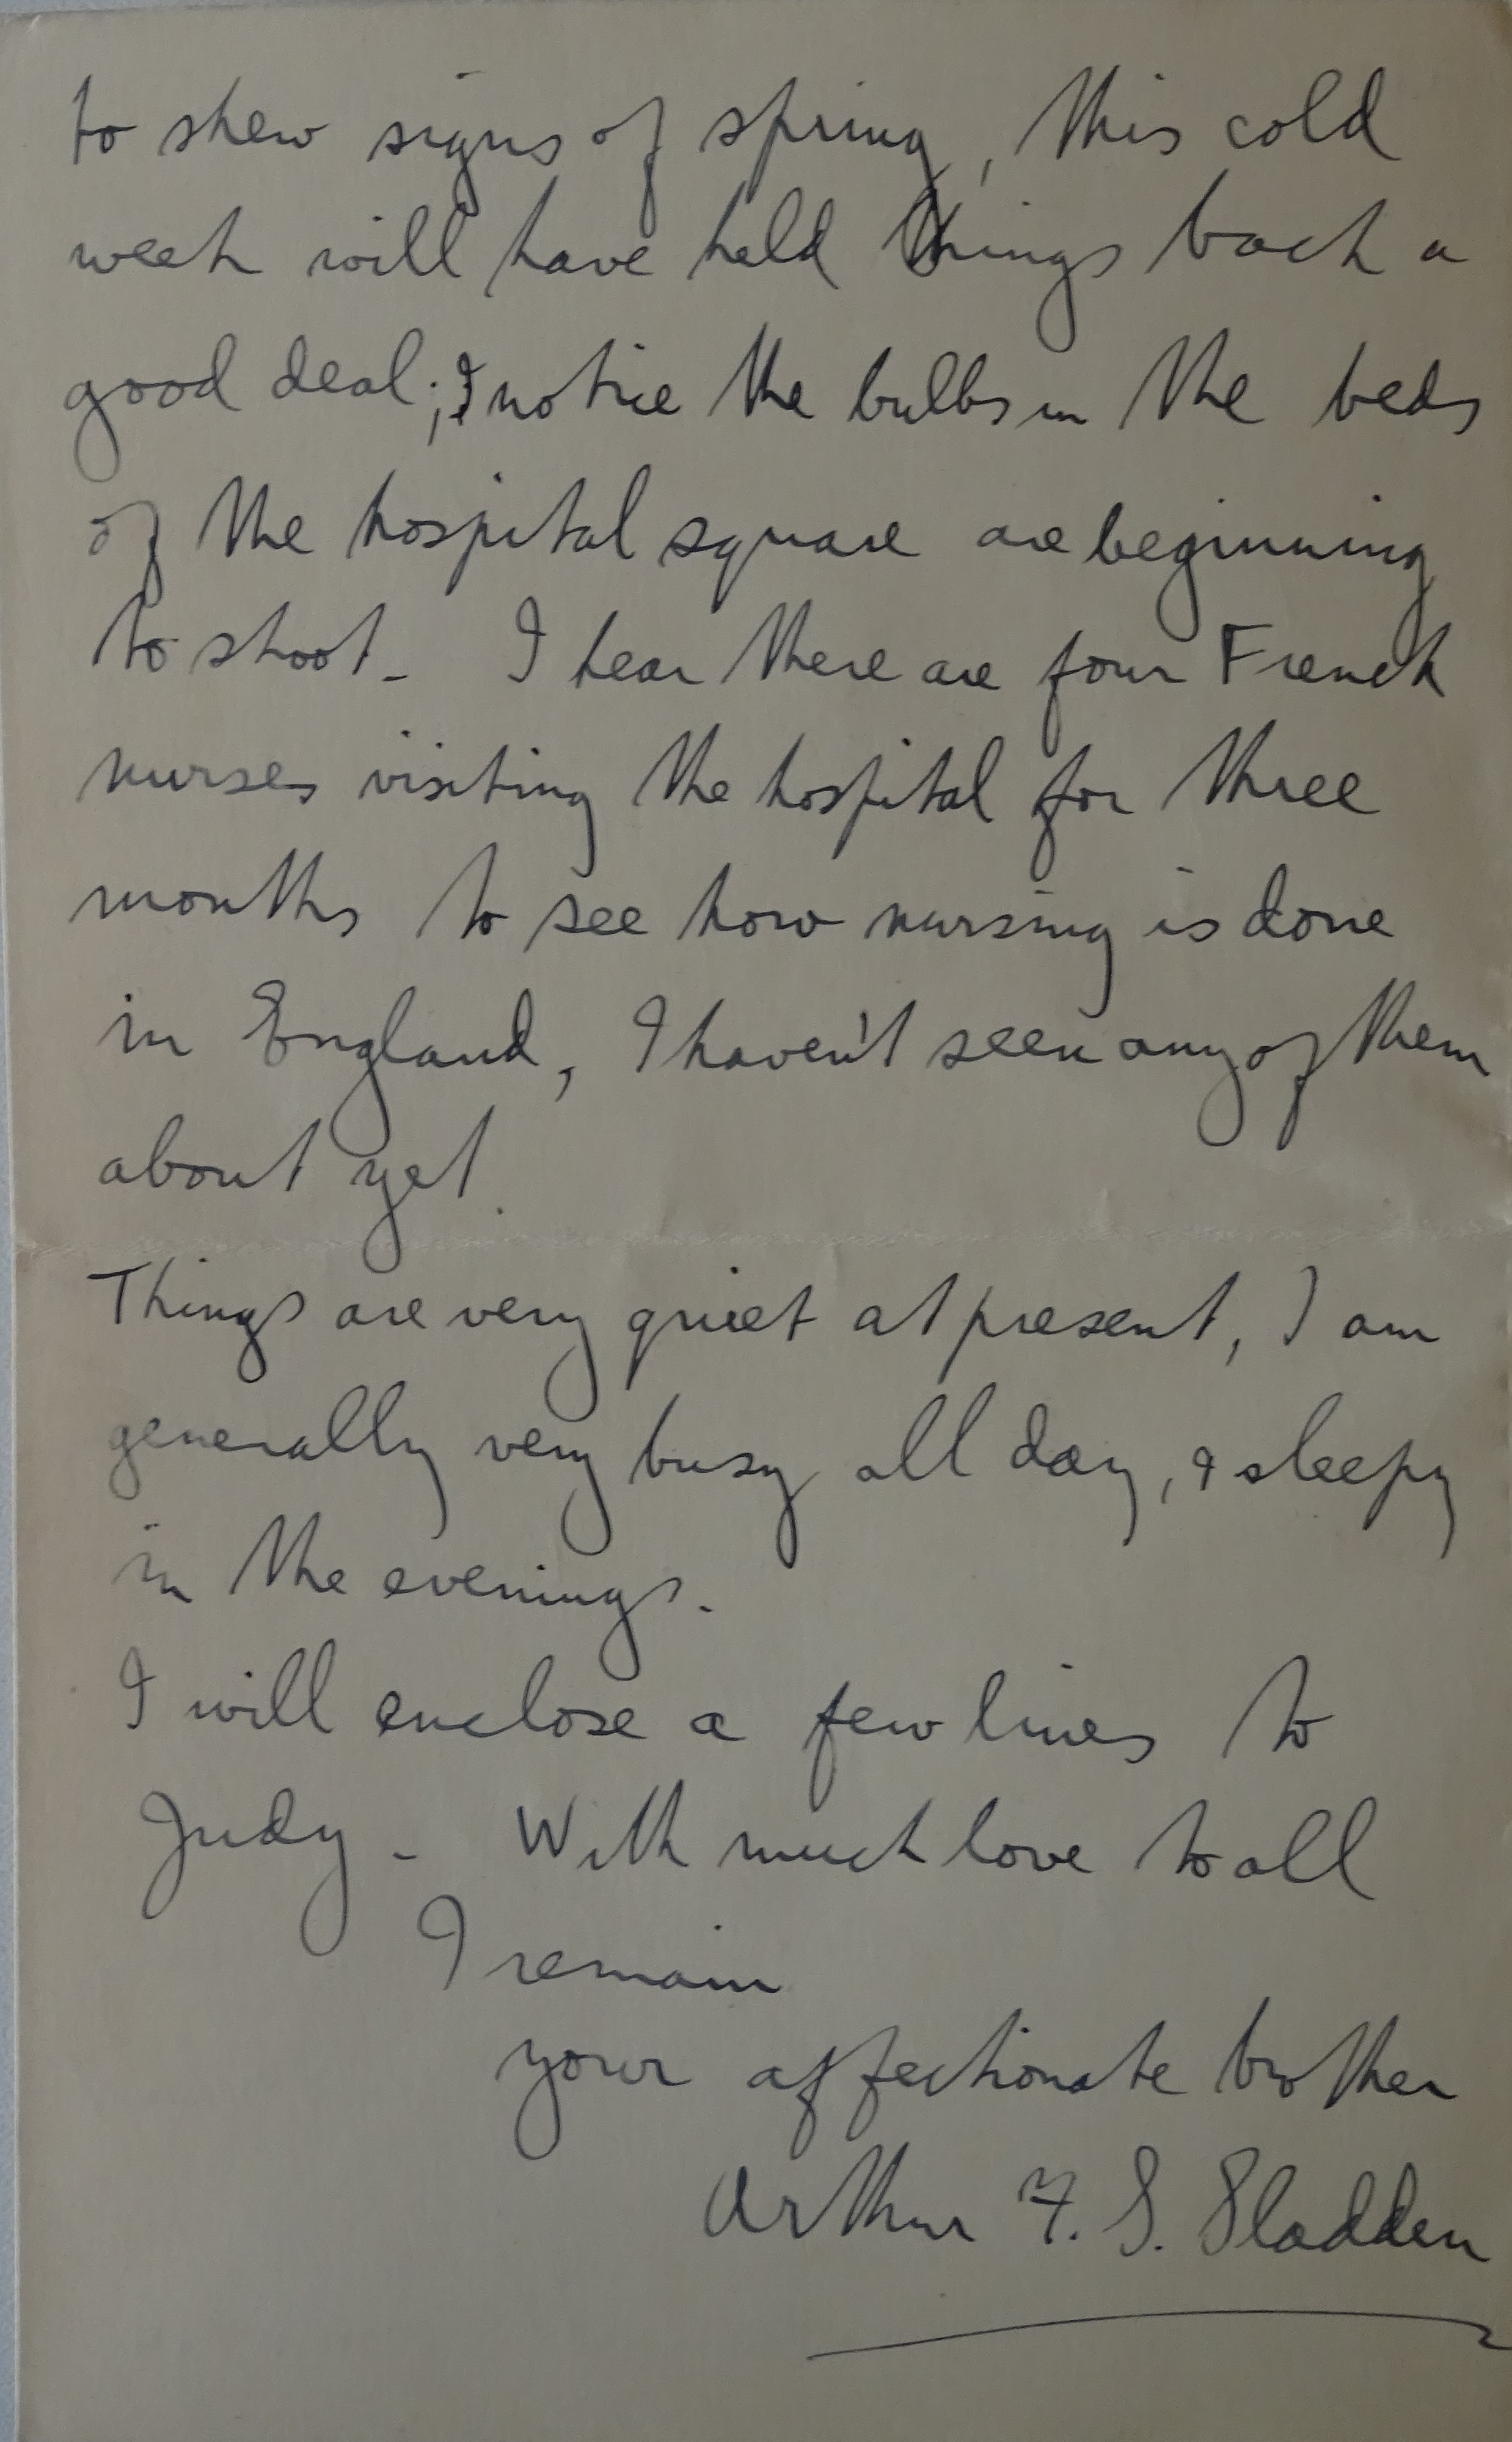 to shew signs of spring, this cold
week will have held things back a
good deal; I notice the bulbs in the beds
of the hospital square are beginning
to shoot. I hear there are four French
nurses visiting the hospital for three
months to see how nursing is done
in England, I haven't seen any of them
about yet.
Things are very quiet at present, I am
generally very busy all day, & sleepy
in the evenings.
I will enclose a few lines to
Judy. With much love to all
I remain
your affectionate brother
Arthur F. S. Sladden